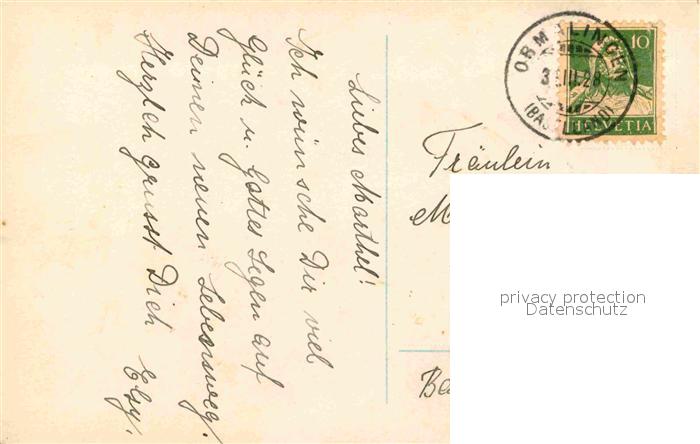 Liebes Marthel!
Ich wünsche Dir viel
Glück u. Gottes Segen auf
Deinen neuen Lebensweg.
Herzlich grüsst Dich Elsy.
ORMALINGEN
(BASELLAND)
10
HELVETIA
Fräulein
M
Ba
privacy protection
Datenschutz